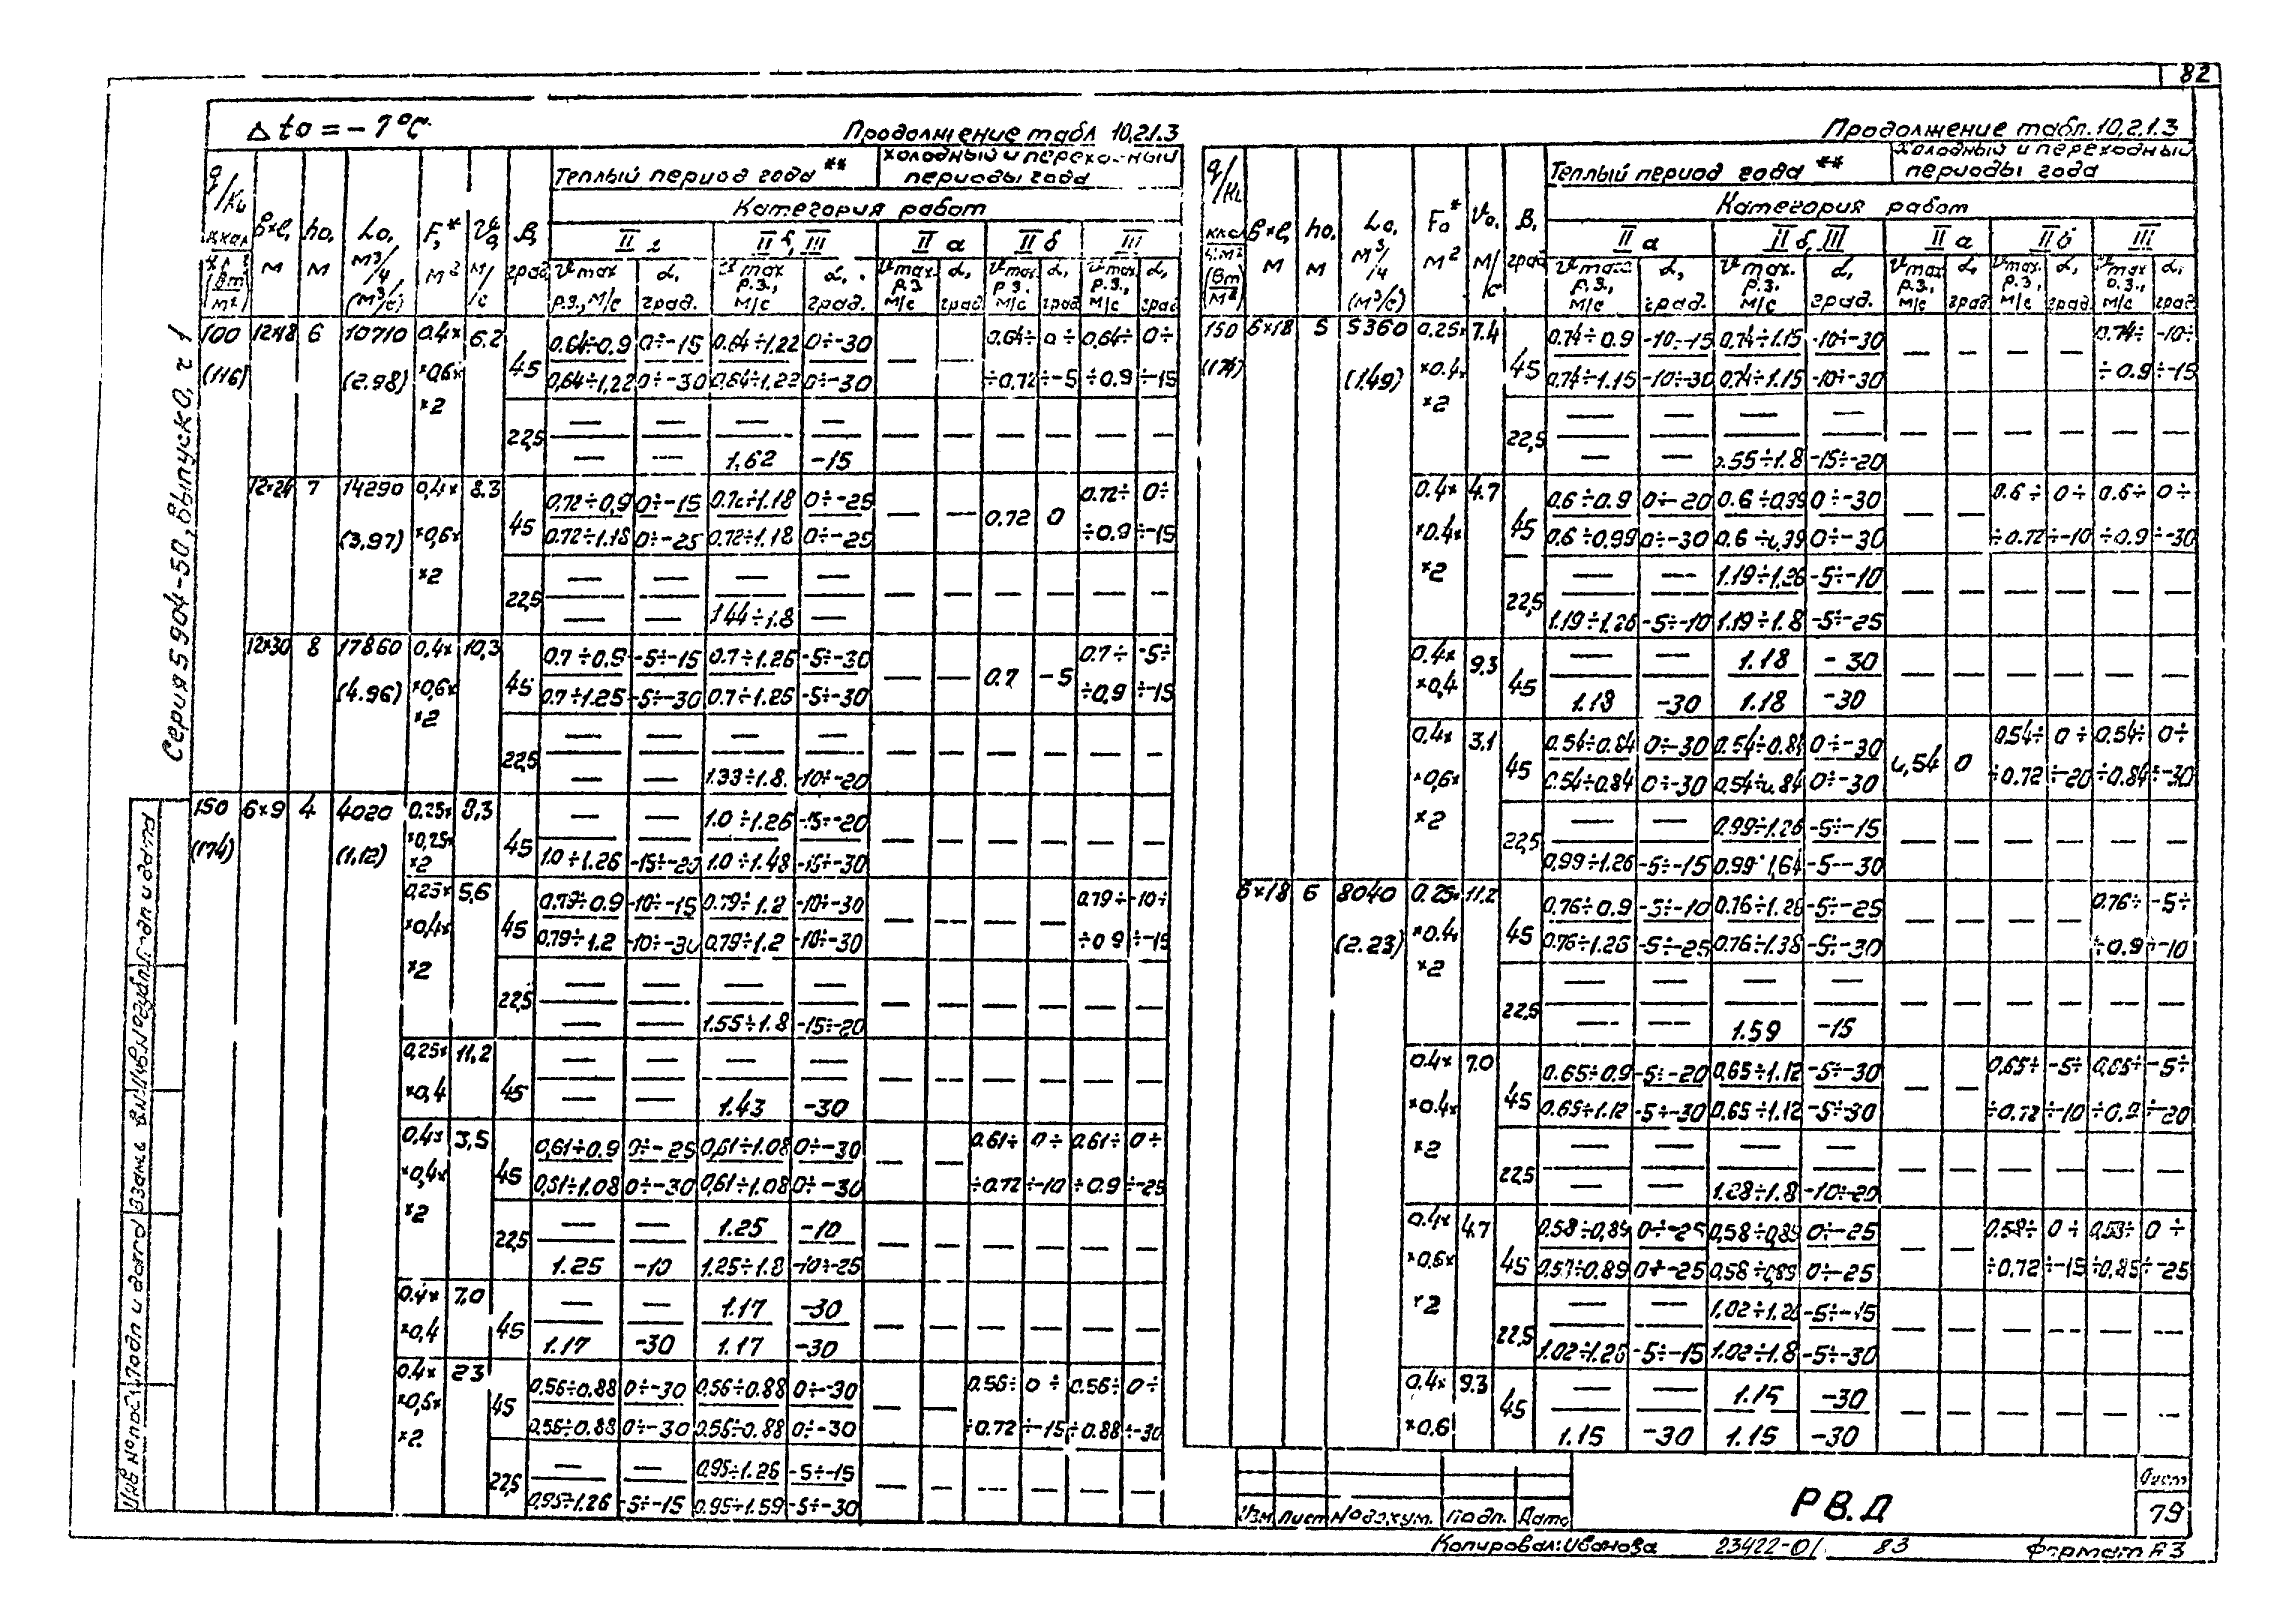 82
Δ to = - 7°C
Продолжение табл 10.2.1.3
Теплый период года **
Категория работ
II б, III
II а
II б
III
100 12×18 6 10710 0.4× 6.2 45 0.64÷0.9 0÷-15 0.64÷1.22 0÷-30 — — 0.64÷ 0÷ 0,64÷ 0÷
(116) (2.98) ×0,6× 0,64÷1,22 0÷-30 0,64÷1,22 0÷-30 ÷0.72 ÷-5 ÷0.9 ÷-15
×2
— — — —
22,5 — — — — — —
— — 1,62 -15
12×24 7 14290 0,4× 8.3 45 0,72÷0,9 0÷-15 0.72÷1.18 0÷-25 — — 0.72 0 0.72÷ 0÷
(3,97) ×0,6× 0.72÷1.18 0÷-25 0.72÷1.18 0÷-25 ÷0.9 ÷-15
×2
— — — —
22,5 — — — — — —
— — 1.44÷1.8 —
12×30 8 17860 0,4× 10,3 45 0.7÷0.9 -5÷-15 0.7÷1.26 -5÷-30 — — 0.7 -5 0.7÷ -5÷
(4.96) ×0,6× 0.7÷1.25 -5÷-30 0.7÷1.25 -5÷-30 ÷0,9 ÷-15
×2
— — — —
22,5 — — — — — —
— — 1.33÷1.8 -10÷-20
150 6×9 4 4020 0.25× 8,3 45 — — 1.0÷1.26 -15÷-20
(174) (1,12) ×0,25× ×2 1.0÷1.26 -15÷-20 1.0÷1.48 -15÷-30
0,25× 5,6 45 0.79÷0.9 -10÷-15 0.79÷1.2 -10÷-30 — — — — 0.79÷ -10÷
×0,4× 0.79÷1.2 -10÷-30 0.79÷1.2 -10÷-30 ÷0.9 ÷-15
×2
— — — —
22,5 — — — — — —
— — 1.55÷1.8 -15÷-20
0,25× 11,2 45 — — — — — — — — — —
×0,4 — — 1.43 -30
0,4× 3,5 45 0,61÷0.9 0÷-25 0,61÷1.08 0÷-30 — — 0.61÷ 0÷ 0,61÷ 0÷
×0,4× 0,61÷1.08 0÷-30 0,61÷1.08 0÷-30 ÷0.72 ÷-10 ÷0.9 ÷-25
×2
— — 1.25 -10
22,5 — — — — — —
1.25 -10 1.25÷1.8 -10÷-25
0.4× 7,0 45 — — 1.17 -30 — — — — — —
×0,4 1.17 -30 1.17 -30
0.4× 2.3 45 0.56÷0.88 0÷-30 0.56÷0.88 0÷-30 — — 0.56÷ 0÷ 0.56÷ 0÷
×2 0.56÷0.88 0÷-30 0.56÷0.88 0÷-30 ÷0.72 ÷-15 ÷0.88 ÷-30
22,5 — — 0,95÷1.26 -5÷-15 — — — — — —
0,95÷1.26 -5÷-15 0.95÷1.59 -5÷-30
Продолжение табл. 10,2.1.3
Теплый период года **
Холодный и переходный периоды года
Категория работ
II а
II б, III
II а
II б
III
150 6×18 5 5360 0,25× 7.4 45 0.74÷0.9 -10÷-15 0.74÷1.15 -10÷-30 — — — — 0.74÷ -10÷
(174) (1.49) ×0.4× 0.74÷1.15 -10÷-30 0.74÷1.15 -10÷-30 ÷0.9 ÷-15
×2
— — — —
22,5 — — — — — —
— — -15÷-20
0.4× 4.7 45 0.6÷0.9 0÷-20 0÷-30 — — 0.6÷ 0÷ 0.6÷ 0÷
×0.4× 0.6÷0.99 0÷-30 0÷-30 ÷0.72 ÷-10 ÷0.9 ÷-30
×2
— — 1.19÷1.26 -5÷-10
22,5 — — — — — —
1.19÷1.26 -5÷-10 1.19÷1.8 -5÷-25
0.4× 9.3 45 — — 1.18 -30 — — — — — —
×0,4 1.18 -30 1.18 -30
0.4× 3,1 45 0.54÷0.84 0÷-30 0.54÷0.84 0÷-30 0,54 0 0.54÷ 0÷ 0.54÷ 0÷
×0,6× 0.54÷0.84 0÷-30 0.54÷0.84 0÷-30 ÷0.72 ÷-20 ÷0.84 ÷-30
×2
— — 0.99÷1.26 -5÷-15
22,5 — — — — — —
0,99÷1.26 -5÷-15 0.99 1,64 -5 -30
6×18 6 8040 0.25× 11.2 45 0.76÷0.9 -5÷-10 0.76÷1.26 -5÷-25 — — — — 0.76÷ -5÷
(2.23) ×0.4× 0.76÷1.26 -5÷-25 0.76÷1.38 -5÷-30 ÷0.9 ÷-10
×2
— — — —
22,5 — — — — — —
— — 1.59 -15
0.4× 7.0 45 0.65÷0.9 -5÷-20 0.65÷1.12 -5÷-30 — — 0,65÷ -5÷ 0,65÷ -5÷
×0.4× 0.65÷1.12 -5÷-30 0.65÷1.12 -5÷-30 ÷0.72 ÷-10 ÷0.9 ÷-20
×2
— — — —
22,5 — — — — — —
— — 1.28÷1.8 -10÷-20
0.4× 4.7 45 0.58÷0,89 0÷-25 0,58÷0,89 0÷-25 — — 0.58÷ 0÷ 0÷
×0,6× 0.57÷0.89 0÷-25 0,58÷0,89 0÷-25 ÷0.72 ÷-15 ÷-25
— — 1.02÷1.26 -5÷-15
22,5 — — — — — —
1.02÷1.26 -5÷-15 1.02÷1.8 -5÷-30
0.4× 9.3 45 — — 1.15 -30 — — — — — —
×0.6 1.15 -30 1.15 -30
Серия 5.904-50, выпуск 0, ч 1
РВ.Д
Лист
79
Изм Лист № докум. Подп. Дата
Копировал: Иванова 23422-01 83 Формат А3